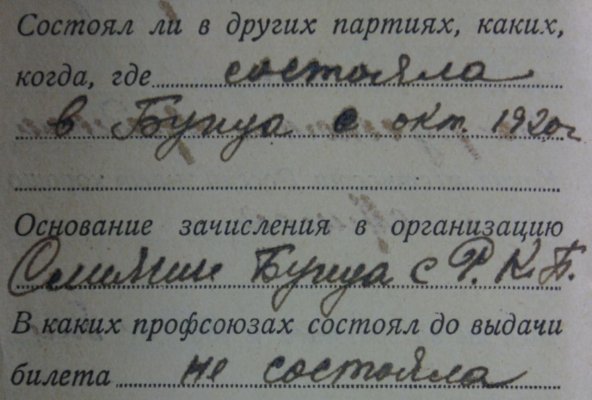 Состоял ли в других партиях, каких,
когда, где состояла
в Бунда с окт. 1920 г
Основание зачисления в организацию
Слияние Бунда с Р.К.П.
В каких профсоюзах состоял до выдачи
билета не состояла